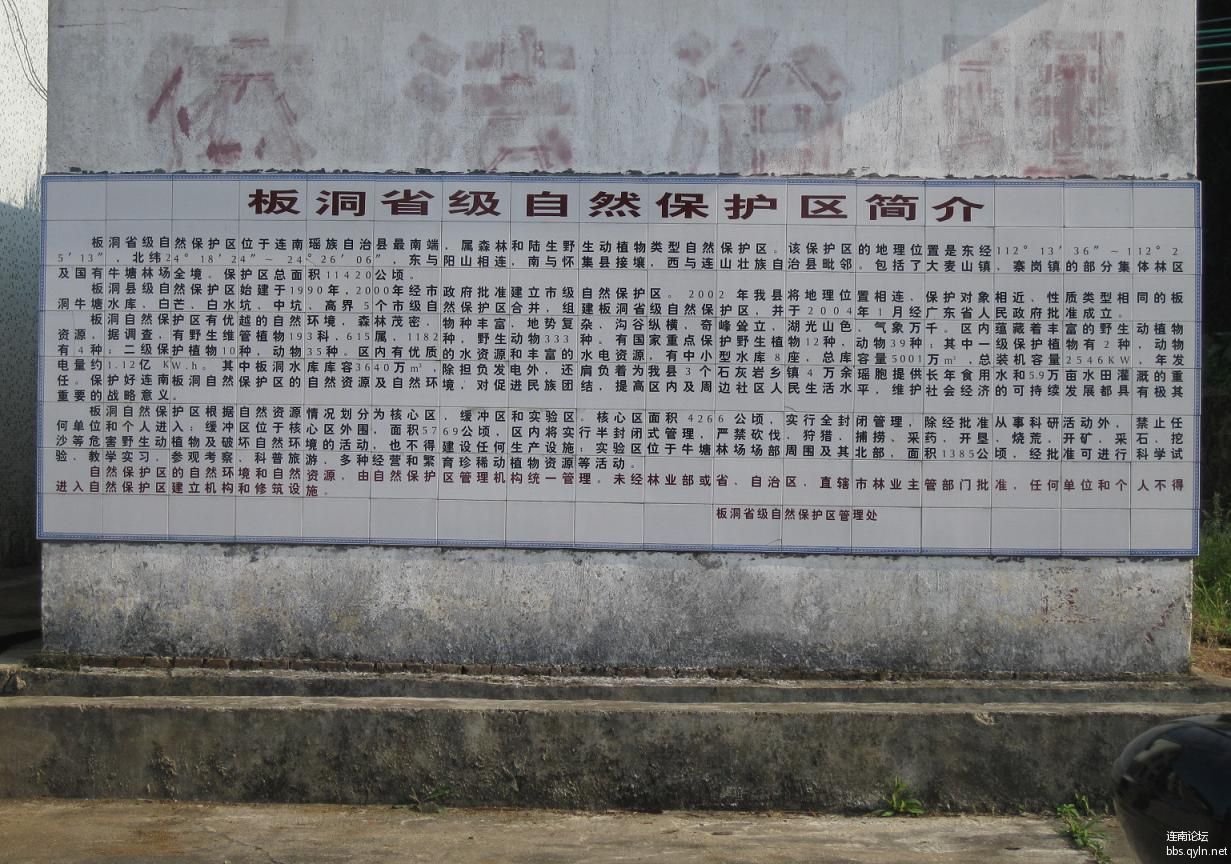 依法治
板洞省级自然保护区简介
板洞省级自然保护区位于连南瑶族自治县最南端，属森林和陆生野生动植物类型自然保护区。该保护区的地理位置是东经112°13′36″～112°2
5′13″，北纬24°18′24″～24°26′06″，东与阳山相连，南与怀集县接壤，西与连山壮族自治县毗邻。包括了大麦山镇、寨岗镇的部分集体林区
及国有牛塘林场全境。保护区总面积11420公顷。
板洞县级自然保护区始建于1990年，2000年经市政府批准建立市级自然保护区。2002年我县将地理位置相连、保护对象相近、性质类型相同的板
洞牛塘水库、白芒、白水坑、中坑、高界5个市级自然保护区合并，组建板洞省级自然保护区，并于2004年1月经广东省人民政府批准成立。
板洞自然保护区有优越的自然环境，森林茂密，物种丰富，地势复杂，沟谷纵横，奇峰耸立，湖光山色，气象万千。区内蕴藏着丰富的野生动植物
资源，据调查，有野生维管植物193科，615属，1182种，野生动物333种。有国家重点保护野生植物12种，动物39种；其中一级保护植物有2种，动物
有4种；二级保护植物10种，动物35种。区内有优质的水资源和丰富的水电资源，有中小型水库8座，总库容量5001万m³，总装机容量2546KW，年发
电量约1.12亿KW.h。其中板洞水库库容3640万m³，除担负发电外，还肩负着为我县3个石灰岩乡镇4万余瑶胞提供长年食用水和5.9万亩水田灌溉的重
任。保护好连南板洞自然保护区的自然资源及自然环境，对促进民族团结，提高区内及周边社区人民生活水平，维护社会经济的可持续发展都具有极其
重要的战略意义。
板洞自然保护区根据自然资源情况划分为核心区，缓冲区和实验区。核心区面积4266公顷，实行全封闭管理，除经批准从事科研活动外，禁止任
何单位和个人进入；缓冲区位于核心区外围，面积5769公顷，区内将实行半封闭式管理，严禁砍伐，狩猎，捕捞、采药、开垦，烧荒、开矿，采石、挖
沙等危害野生动植物及破坏自然环境的活动，也不得建设任何生产设施；实验区位于牛塘林场场部周围及其北部，面积1385公顷，经批准可进行科学试
验、教学实习，参观考察、科普旅游，多种经营和繁育珍稀动植物资源等活动。
自然保护区的自然环境和自然资源，由自然保护区管理机构统一管理。未经林业部或省、自治区，直辖市林业主管部门批准，任何单位和个人不得
进入自然保护区建立机构和修筑设施。
板洞省级自然保护区管理处
连南论坛
bbs.qyln.net